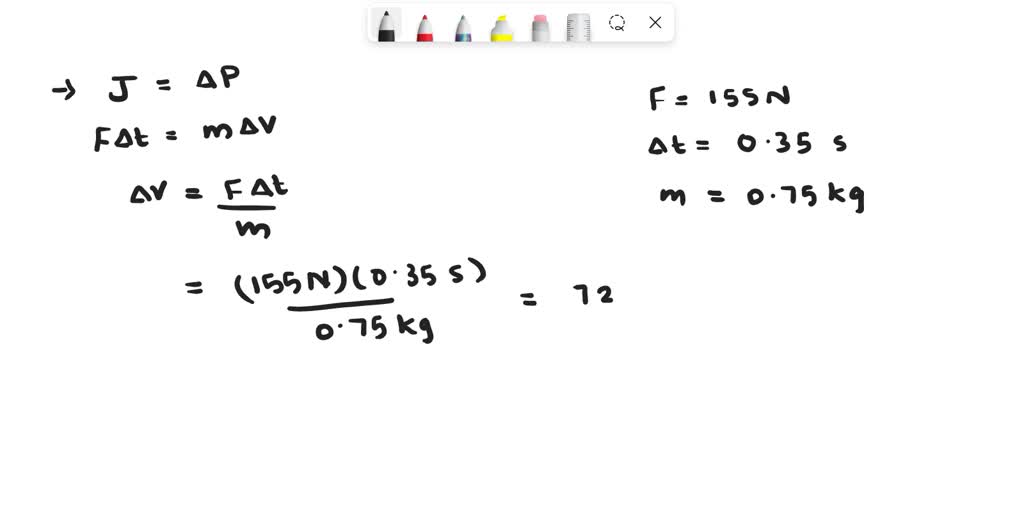 → J = ΔP
FΔt = mΔV
ΔV = FΔt / m
= (155N)(0.35 s) / 0.75 kg = 72
F = 155N
Δt = 0.35 s
m = 0.75 kg